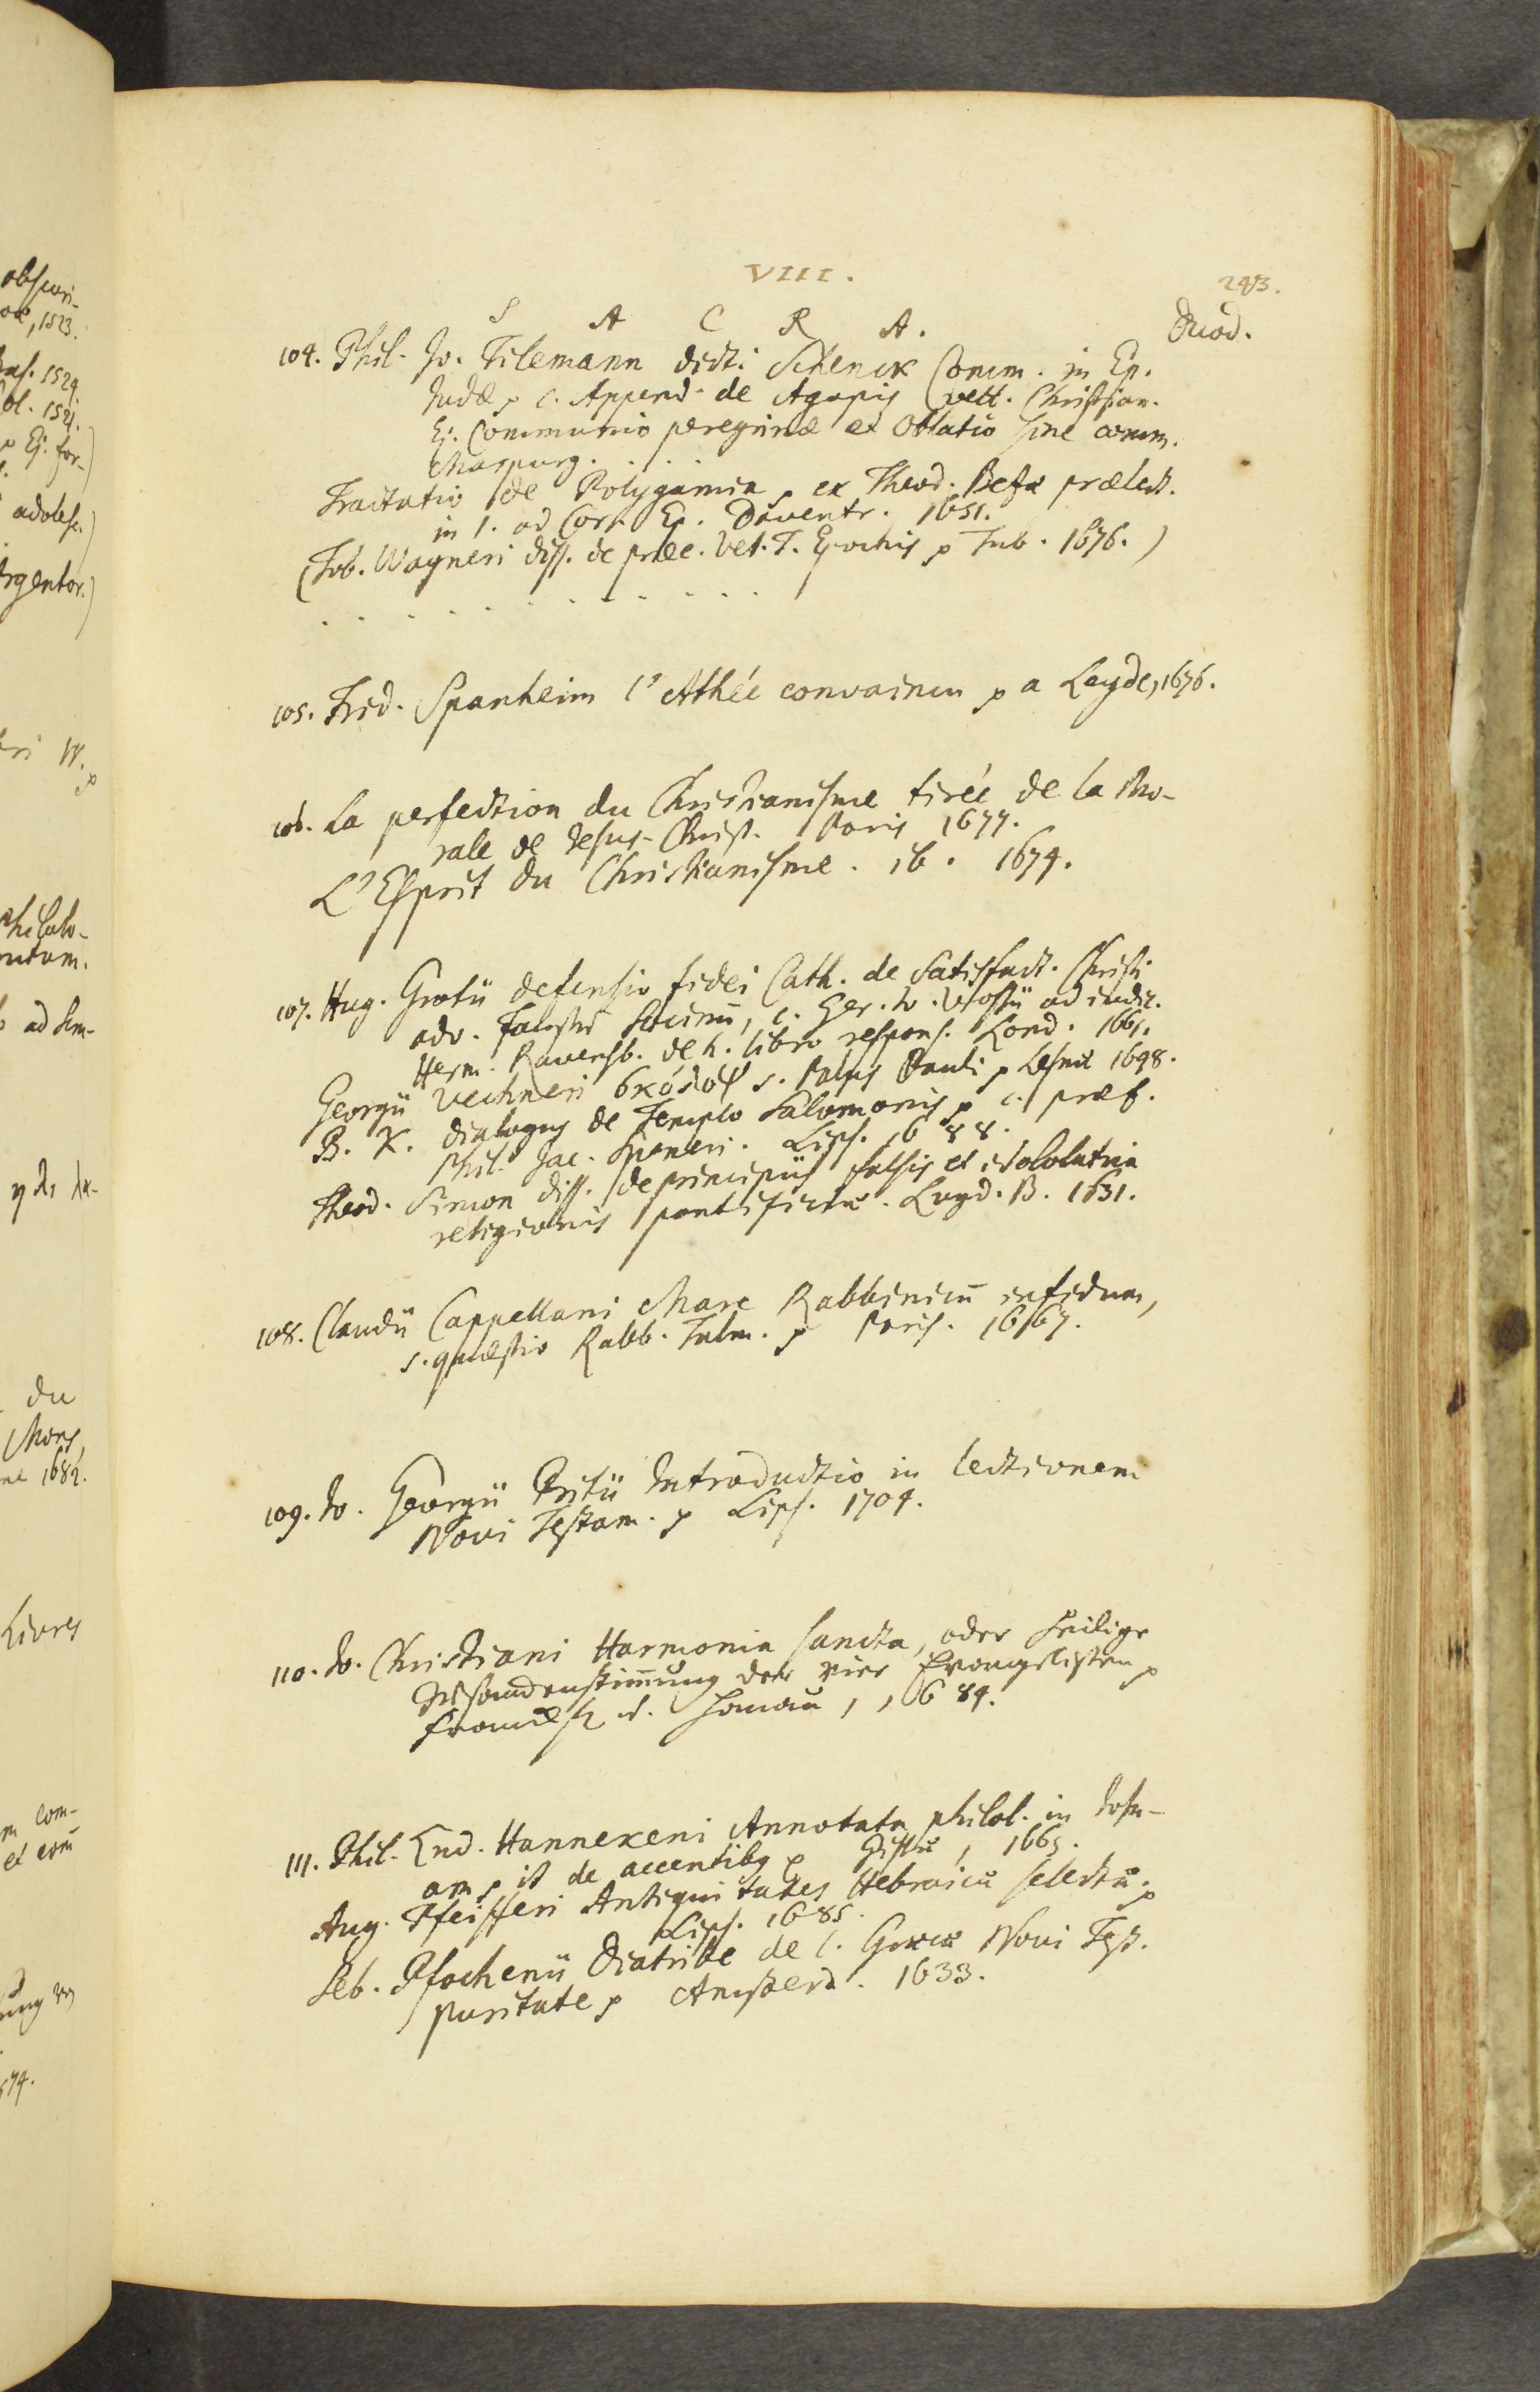 VIII.
243.
S A C R A.
Duod.
104. Phil. Jo. Tilemann dicti Schenck Comm. in Ep.
Judæ p c. Append. de Agapis vett. Christian.
Ej. Communio peregrina et Oblatio sine comm.
Marpurg. . . . .
Tractatio de Polygamia p ex Theod. Bezæ prælect.
in 1. ad Cor. Ep. Daventr. 1651.
(Tob. Wagneri diss. de præc. Vet. T. Epochis p Tub. 1676.)
. . . . . . . . . . . .
105. Frid. Spanheim l'Athée convaincu p a Leyde, 1676.
106. La perfection du Christianisme tirée de la Mo-
rale de Jesus-Christ. Paris 1677.
L'Esprit du Christianisme. ib. 1674.
107. Hug. Grotii defensio fidei Cath. de Satisfact. Christi
adv. Faustū Socinū, c. Ger. Jo. Vossii ad iudic.
Herm. Ravensb. de h. libro respons. Lond. 1661.
Georgii Vechneri σκόλοψ s. Palus Pauli p Lesnæ 1648.
B. K. dialogus de Templo Salomonis p c. præf.
Phil. Jac. Speneri. Lips. 1688.
Theod. Simon diss. de principiis falsis et idololatria
religionis pontificiæ. Lugd. B. 1631.
108. Claudii Cappellani Mare Rabbinicū infidum,
s. quæstio Rabb. Talm. p Paris. 1667.
109. Jo. Georgii Pritii Introductio in lectionem
Novi Testam. p Lips. 1704.
110. Jo. Christiani Harmonia sancta, oder heilige
der vier Evangelisten p
Hanau, 1684.
111. Phil. Lud. Hannekeni Annotata philol. in Josu-
am p it de accentibg p Gissæ, 1665.
Aug. Pfeifferi Antiquitates Hebraicæ selectæ p
Lips. 1685.
Seb. Pfochenii Diatribe de l. Græcæ Novi Test.
puritate p Amsterd. 1633.